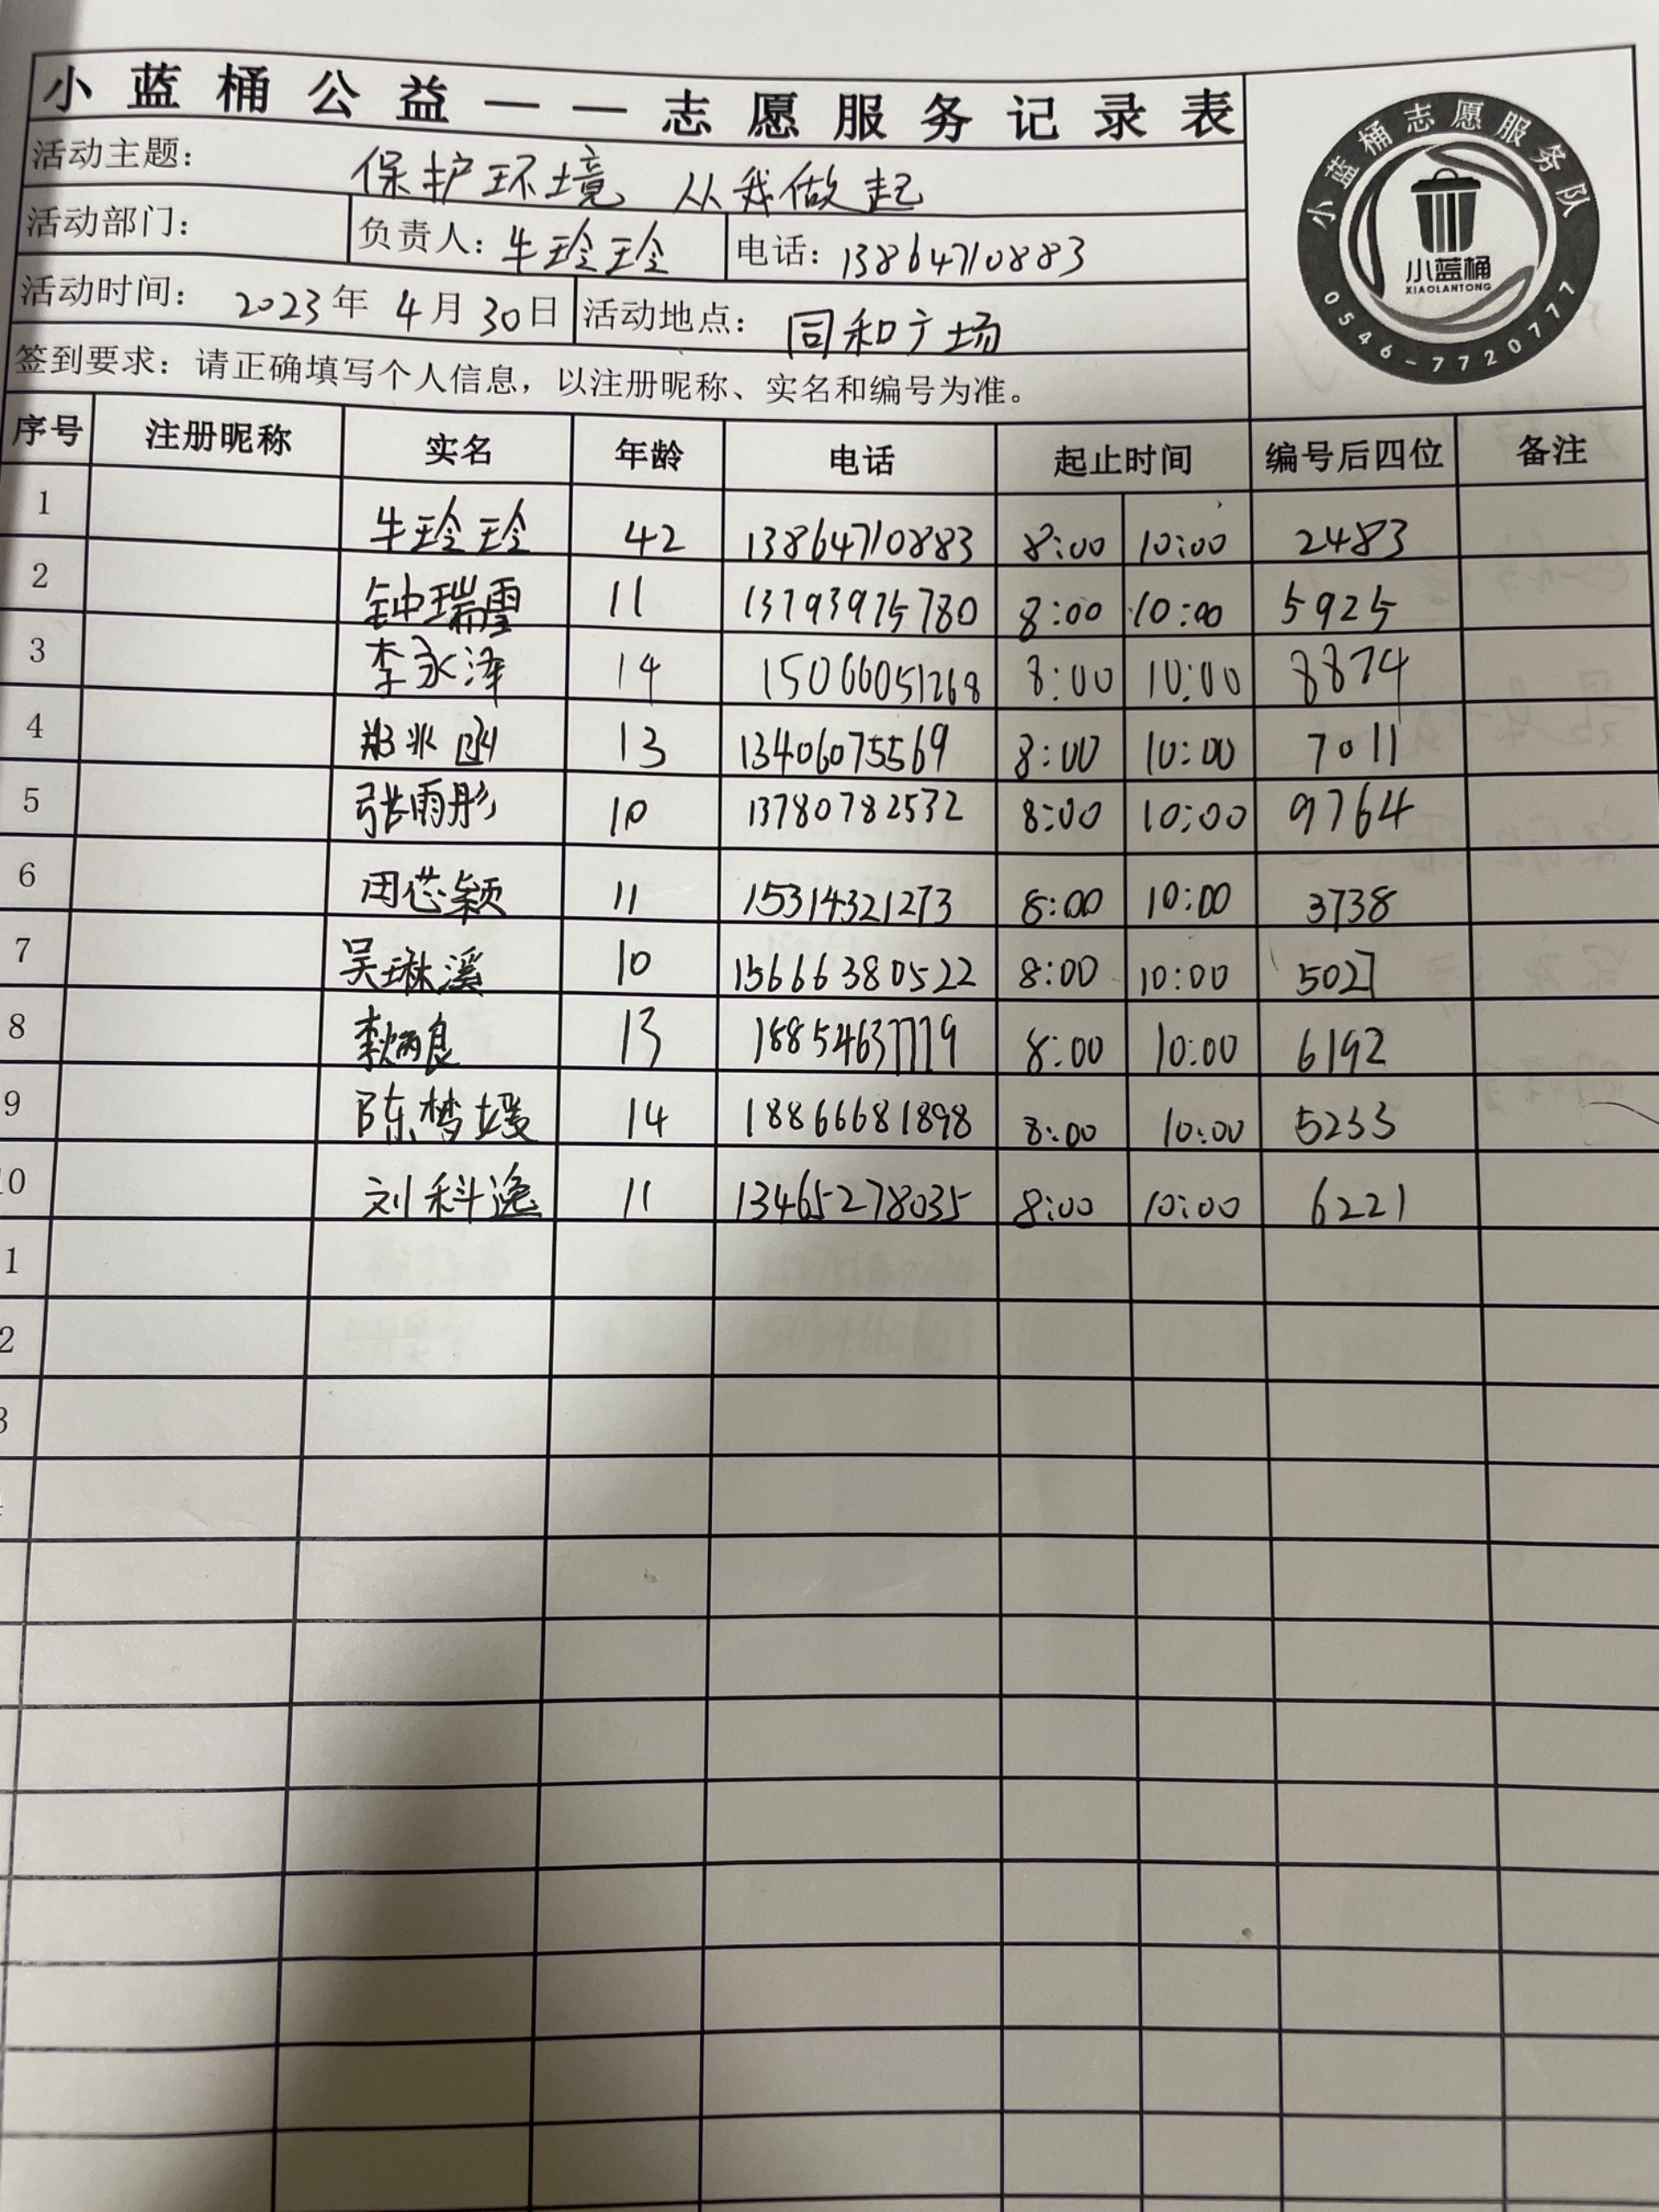 小蓝桶公益——志愿服务记录表
小蓝桶志愿服务队
小蓝桶
XIAOLANTONG
0546-7720777
活动主题： 保护环境、从我做起
活动部门： 负责人：牛玲玲 电话：13864710883
活动时间： 2023年 4月30日 活动地点： 同和广场
签到要求：请正确填写个人信息，以注册昵称、实名和编号为准。
序号 注册昵称 实名 年龄 电话 起止时间 编号后四位 备注
1 牛玲玲 42 13864710883 8:00 10:00 2483
2 钟瑞雪 11 13793975780 8:00 10:00 5925
3 李永泽 14 15066051268 8:00 10:00 8874
4 13 13406075569 8:00 10:00 7011
5 张雨彤 10 13780782532 8:00 10:00 9764
6 周芯颖 11 15314321273 8:00 10:00 3738
7 吴琳溪 10 15666380522 8:00 10:00 5027
8 李炳良 13 18854637719 8:00 10:00 6192
9 陈梦媛 14 18866681898 8:00 10:00 5233
10 刘科逸 11 13465278035 8:00 10:00 6221
1
2
3